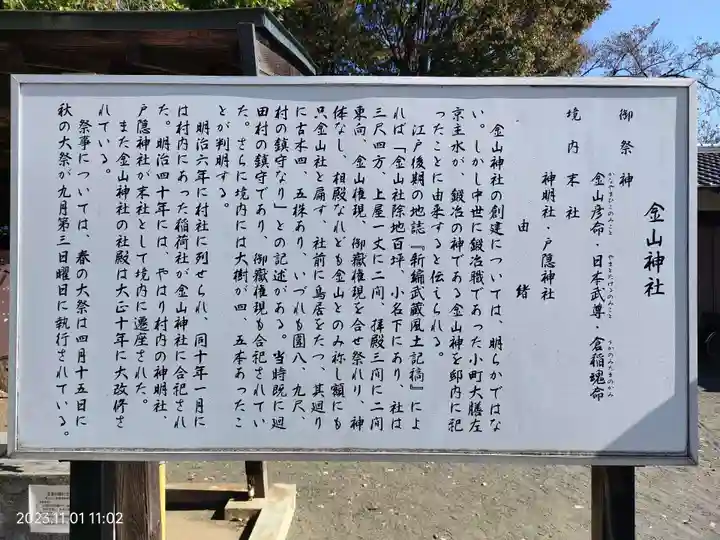 金山神社
御祭神
金山彦命・日本武尊・倉稲魂命
かなやまひこのみこと
やまとたけるのみこと
うかのみたまのかみ
境内末社
神明社・戸隠神社
由緒
金山神社の創建については、明らかではな
い。しかし中世に鍛冶職であった小町大膳左
京主水が、鍛冶の神である金山神を邸内に祀
ったことに由来すると伝えられる。
江戸後期の地誌『新編武蔵風土記稿』によ
れば「金山社除地百坪、小名下にあり、社は
三尺四方、上屋一丈に二間、拝殿三間に二間
東向、金山権現、御嶽権現を合せ祭れり、神
体なし、相殿なれども金山とのみ称し額にも
只金山社と扁す、社前に鳥居をたつ、其廻り
に古木四、五株あり、いづれも圍八、九尺、
村の鎮守なり」との記述がある。当時既に廻
田村の鎮守であり、御嶽権現も合祀されてい
た。さらに境内には大樹が四、五本あったこ
とが判明する。
明治六年に村社に列せられ、同十年一月に
は村内にあった稲荷社が金山神社に合祀され
た。明治四十年には、やはり村内の神明社、
戸隠神社が末社として境内に遷座された。
また金山神社の社殿は大正十年に大改修さ
れている。
祭事については、春の大祭は四月十五日に
秋の大祭が九月第三日曜日に執行されている。
2023.11.01 11:02